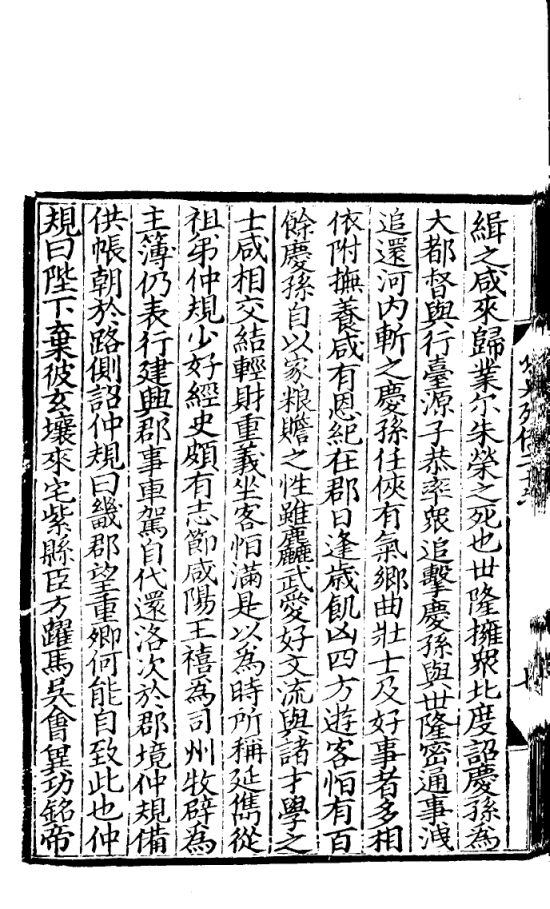 緝之咸來歸業尒朱榮之死也世隆擁衆北度詔慶孫爲
大都督與行臺源子恭率衆追擊慶孫與世隆密通事洩
追還河内斬之慶孫任俠有氣鄉曲壯士及好事者多相
依附撫養咸有恩紀在郡日逢歲飢凶四方遊客恒有百
餘慶孫自以家粮贍之性雖麤武愛好文流與諸才學之
士咸相交結輕財重義坐客恒滿是以爲時所稱延儁從
祖弟仲規少好經史頗有志節咸陽王禧爲司州牧辟爲
主簿仍表行建興郡事車駕自代還洛次於郡境仲規備
供帳朝於路側詔仲規曰畿郡望重卿何能自致此也仲
規曰陛下棄彼玄壤來宅紫縣臣方躍馬吳會冀功銘帝